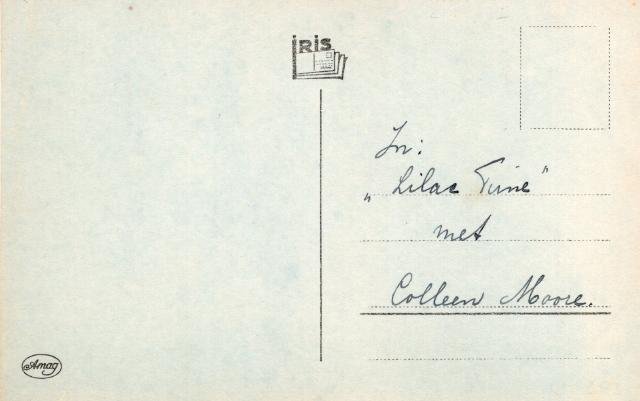 IRIS
In:
„Lilac Time"
met
Colleen Moore.
Amag